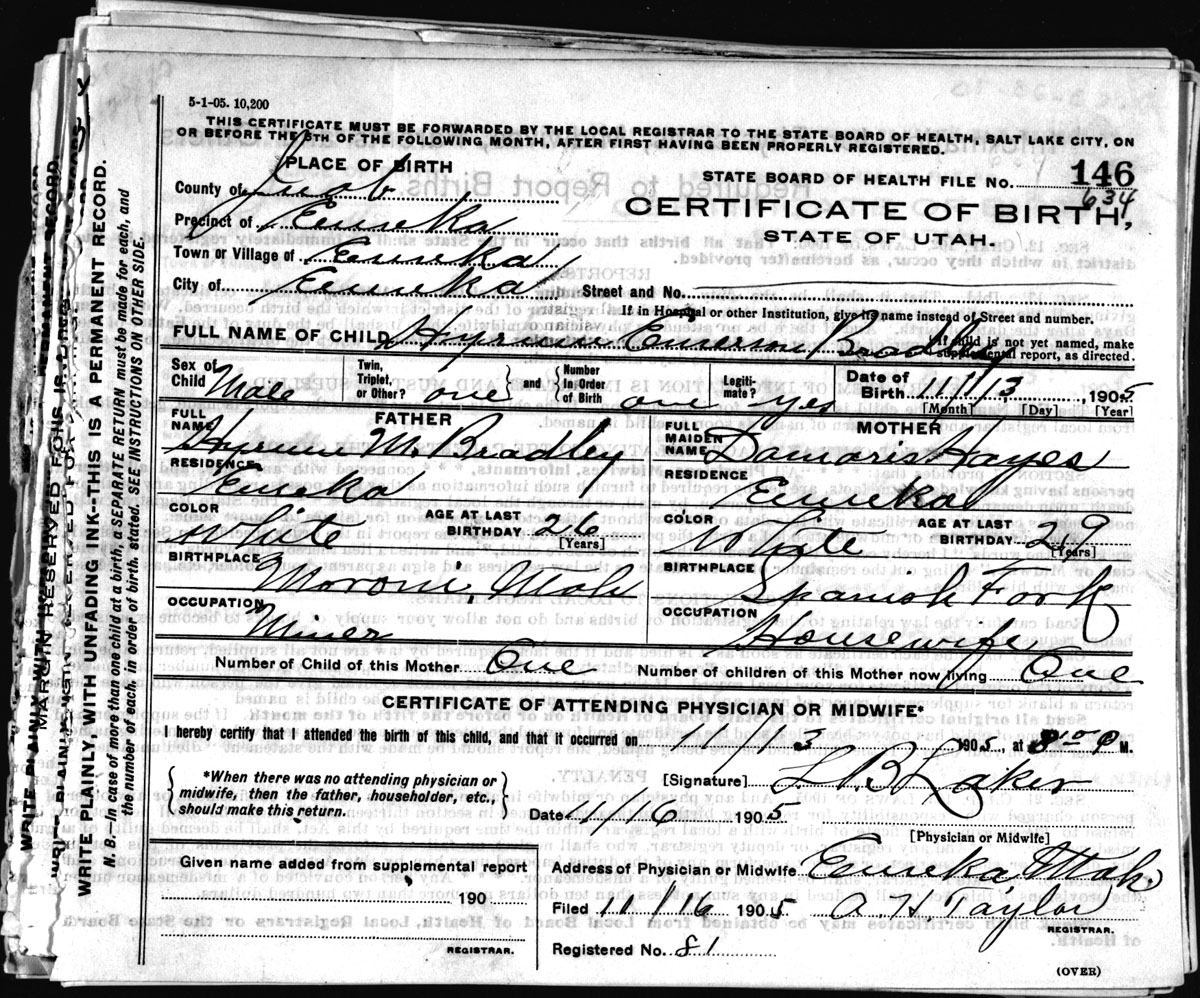 5-1-05. 10,200
THIS CERTIFICATE MUST BE FORWARDED BY THE LOCAL REGISTRAR TO THE STATE BOARD OF HEALTH, SALT LAKE CITY, ON
OR BEFORE THE 5TH OF THE FOLLOWING MONTH, AFTER FIRST HAVING BEEN PROPERLY REGISTERED.
PLACE OF BIRTH
County of Juab
Precinct of Eureka
Town or Village of Eureka
City of Eureka
STATE BOARD OF HEALTH FILE NO. 146
634
CERTIFICATE OF BIRTH,
STATE OF UTAH.
Street and No.
If in Hospital or other Institution, give its name instead of Street and number.
FULL NAME OF CHILD Hyrum Emerson Bradley
If child is not yet named, make
supplemental report, as directed.
Sex of Child Male
Twin, Triplet, or Other? one and Number in Order of Birth one
Legitimate? yes
Date of Birth 11/13 1905
[Month] [Day] [Year]
FATHER
FULL NAME Hyrum M. Bradley
RESIDENCE Eureka
COLOR White
AGE AT LAST BIRTHDAY 26
[Years]
BIRTHPLACE Moroni, Utah
OCCUPATION Miner
MOTHER
FULL MAIDEN NAME Damaris Hayes
RESIDENCE Eureka
COLOR White
AGE AT LAST BIRTHDAY 29
[Years]
BIRTHPLACE Spanish Fork
OCCUPATION Housewife
Number of Child of this Mother One
Number of children of this Mother now living One
CERTIFICATE OF ATTENDING PHYSICIAN OR MIDWIFE*
I hereby certify that I attended the birth of this child, and that it occurred on 11/13 1905, at P M.
*When there was no attending physician or
midwife, then the father, householder, etc.,
should make this return.
[Signature]
Date 11/16 1905
[Physician or Midwife]
Address of Physician or Midwife Eureka, Utah
Given name added from supplemental report
190
REGISTRAR.
Filed 11/16 1905 Taylor
REGISTRAR.
Registered No. 81
(OVER)
WRITE PLAINLY WITH UNFADING INK—THIS IS A PERMANENT RECORD.
N. B.—In case of more than one child at a birth, a SEPARATE RETURN must be made for each, and
the number of each, in order of birth, stated. SEE INSTRUCTIONS ON OTHER SIDE.
MARGIN RESERVED FOR